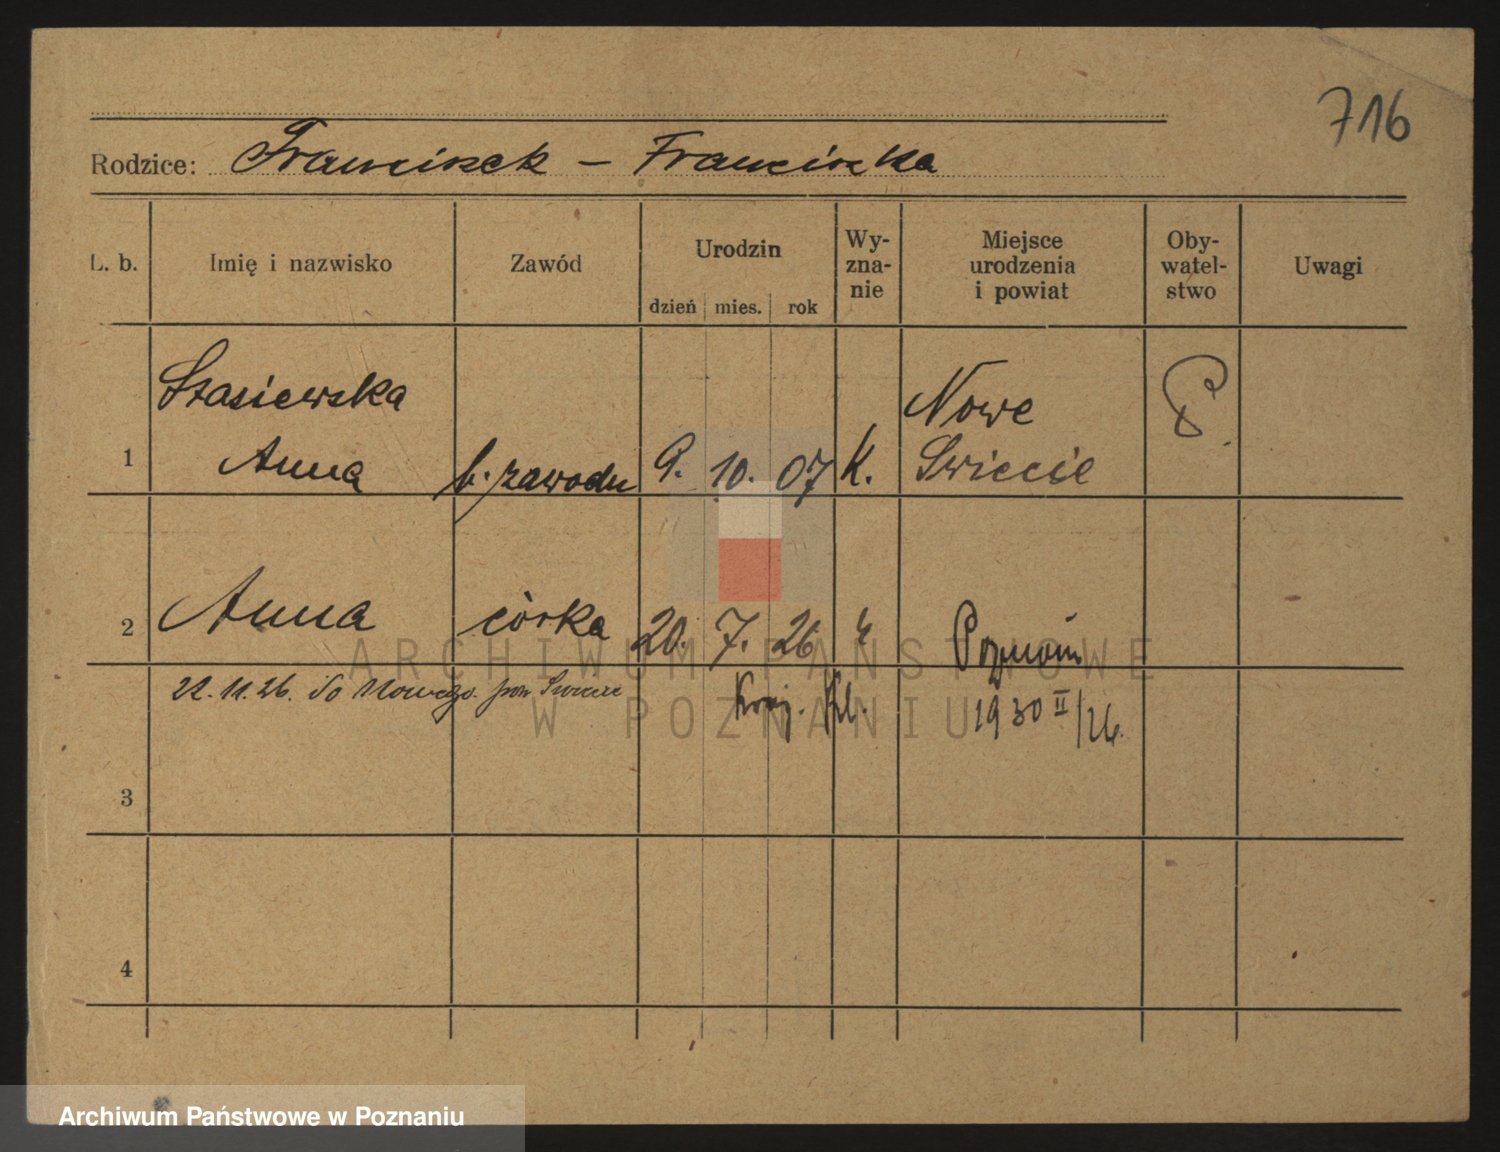 716
Rodzice: Franciszek – Franciszka
L. b. Imię i nazwisko Zawód Urodzin dzień mies. rok Wy-zna-nie Miejsce urodzenia i powiat Oby-watel-stwo Uwagi
Stasiewska Nowe P
1 Anna b. zawodu 9. 10. 07 K. Swiecie
2 Anna córka 20. 7. 26 k Poznań
22. 11. 26. do Nowego. pow Swiecie
1930 II/26.
3
4
ARCHIWUM PAŃSTWOWE
W POZNANIU
Archiwum Państwowe w Poznaniu